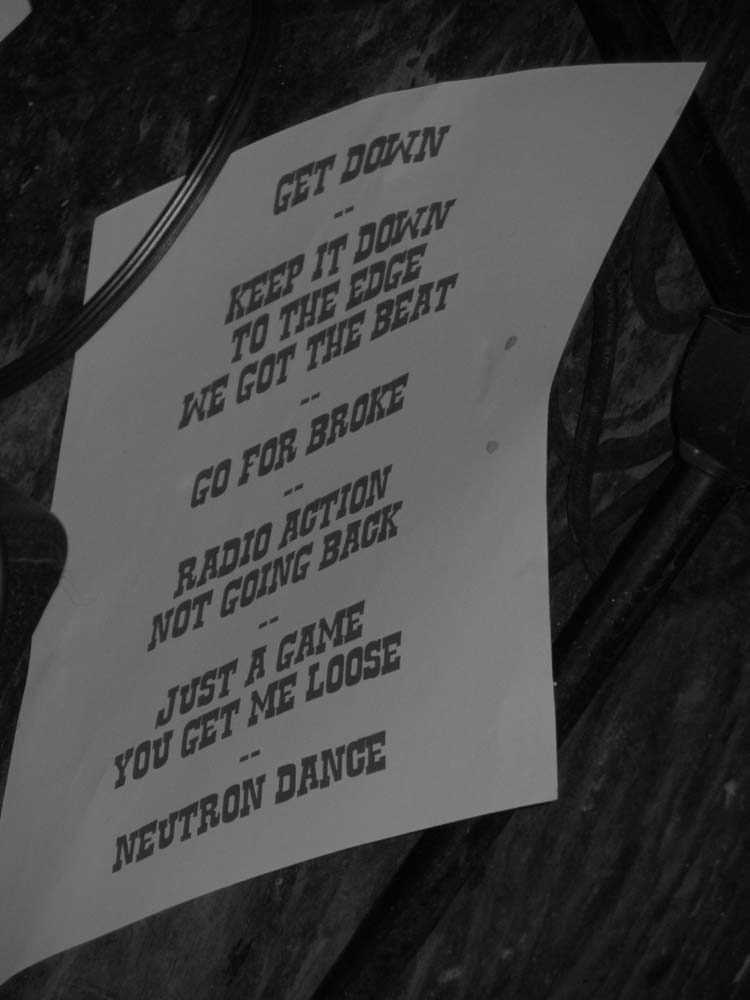 GET DOWN
--
KEEP IT DOWN
TO THE EDGE
WE GOT THE BEAT
--
GO FOR BROKE
--
RADIO ACTION
NOT GOING BACK
--
JUST A GAME
YOU GET ME LOOSE
--
NEUTRON DANCE